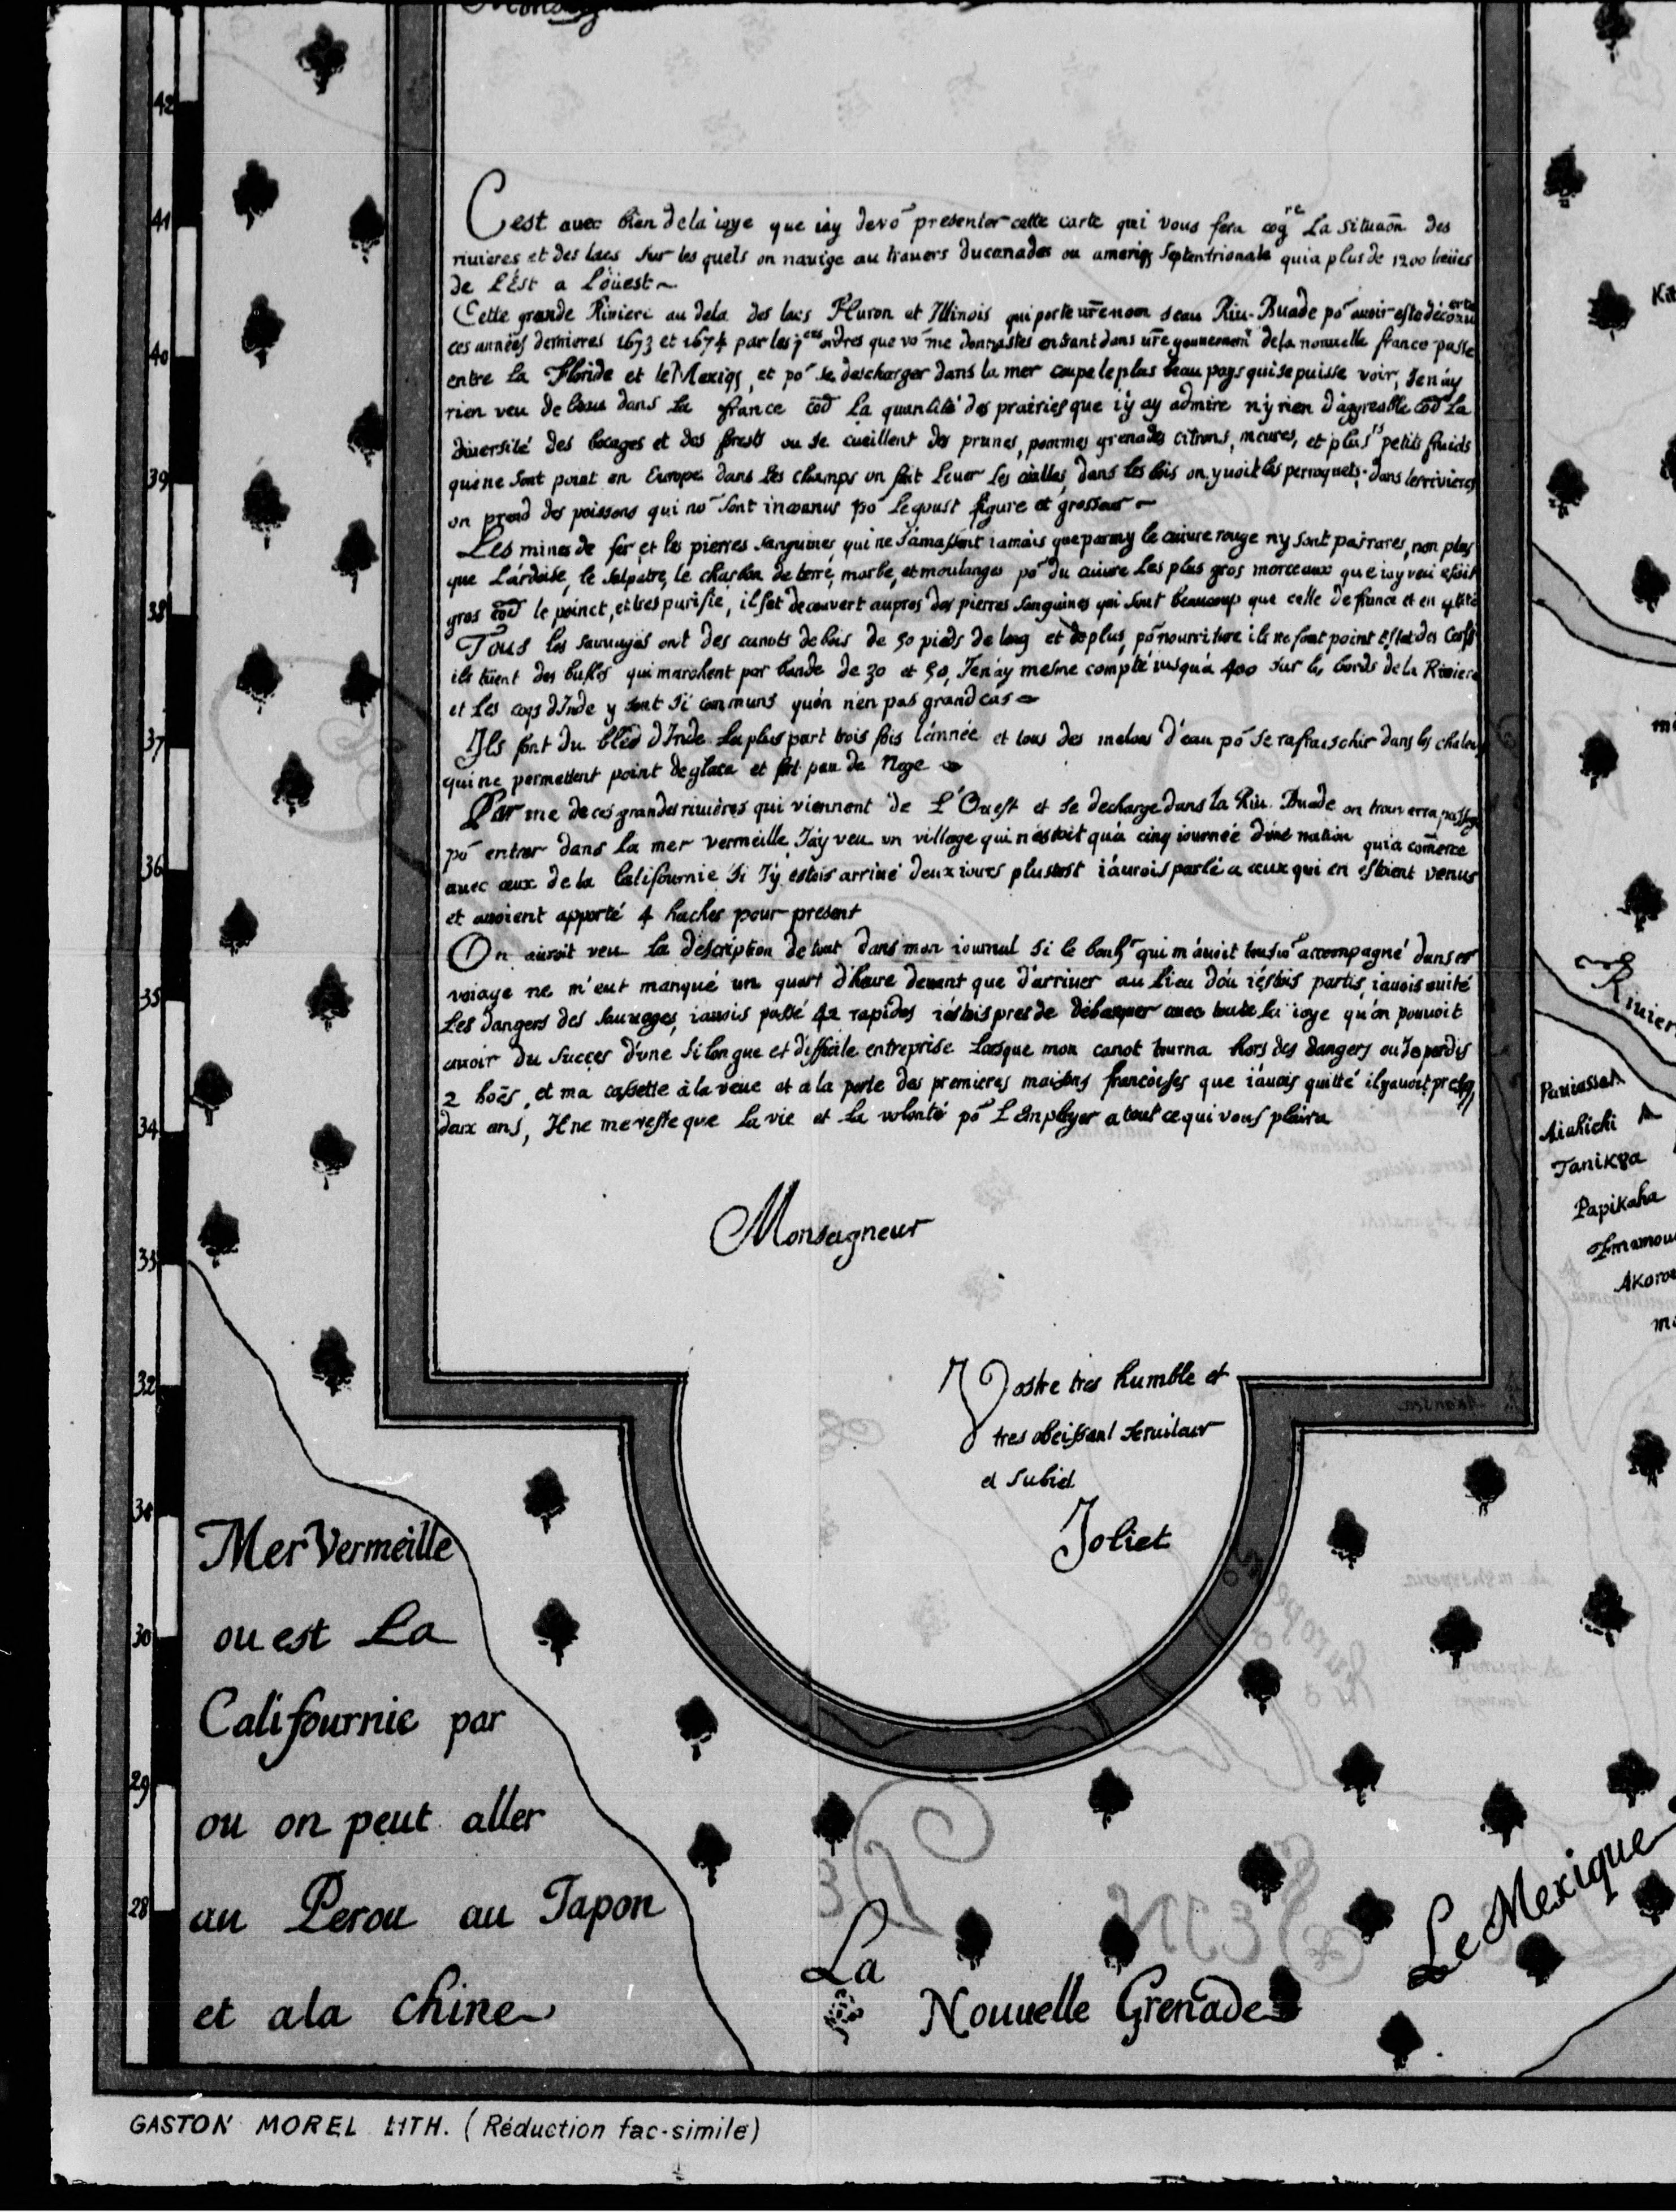 C'est avec bien de la ioye que iay de vō presenter cette carte qui vous fera cog^re La situaōn des
riuieres et des lacs sur les quels on nauige au trauers du canadas ou ameriq Septentrionale qui a plus de 1200 lieües
de L'Est a L'oüest
Cette grande Riviere au dela des lacs Huron et Illinois qui porte vr̄e nom seau Riu-Buade pō auoir esté décou^erte
ces années dernieres 1673 et 1674 par les ordres que vō me donnastes entrant dans vr̄e gouuernem^t de la nouuelle france passe
entre La Floride et le Mexiq, et pō se descharger dans la mer coupe le plus beau pays qui se puisse voir, Je n'ay
rien veu de beau dans La france cōe La quantité des prairies que i'y ay admire n'y rien d'aggreable cōe La
diuersité des bocages et des forests ou se cueillent des prunes, pommes grenades citrons, meures, et plus^rs petits fruids
que ne sont point en Europe dans Les champs on fait Leuer Les cailles, dans les bois on y uoit les perroquets. dans les rivieres
on prend des poissons qui nō sont inconnus pō Le goust figure et grosseur
Les mines de fer et les pierres sanguines, qui ne s'amassent iamais que parmy le cuivre rouge n'y sont pas rares, non plus
que L'ardoise, le salpetre, le charbon de terre, marbe, et moulanges pō du cuivre Les plus gros morceaux que i'ay veu estoit
gros cōe le poinct, et tres purifié, il fut decouvert aupres des pierres sanguines qui sont beaucoup que celle de france et en qtité
Tous les sauuages ont des canots de bois de 50 pieds de long et de plus, pō nourriture ils ne font point Estat des Cerfs
ils tüent des bufles qui marchent par bande de 30 et 50, Je n'ay mesme compté iusqu'a 400 sur les bords de la Riviere
et Les coqs d'Inde y sont si communs qu'on n'en pas grand cas
Ils font du bled d'Inde La plus part trois fois L'année et tous des melons d'eau pō se rafraischir dans les chaleurs
qui ne permettent point de glace et fort peu de Nege
Par vne de ces grandes riuières qui viennent de L'Ouest et se decharge dans La Riu. Buade on trouuerra passage
pō entrer dans La mer vermeille, J'ay veu un village qui n'estoit qu'a cinq iournée d'une nation qui a com̄erce
auec ceux de la Califournie si J'y estois arriué deux iours plustost i'aurois parlé a ceux qui en estoient venus
et auoient apporté 4 haches pour present
On auroit veu La description de tout dans mon iournal Si le bonh^r qui m'auoit tousiō accompagné dans ce
voiage ne m'eut manqué un quart d'heure deuant que d'arriuer au lieu d'ou i'estois partis, iauois euité
Les dangers des Sauuages, iauois passé 42 rapides i'estois pres de débarquer auec toute la ioye qu'on pouuoit
auoir du Succes d'vne si longue et difficile entreprise Lorsque mon canot tourna hors des dangers ou Je perdis
2 hōes, et ma cassette à la veue et a la porte des premieres maisons francoises que i'auois quitté il y auoit presq
deux ans, Il ne me reste que La vie et La volonté pō L'employer a tout ce qui vous plaira
Monseigneur
Vostre tres humble et
tres obeissant seruiteur
et subiet
Joliet
42
41
40
39
38
37
36
35
34
33
32
31
30
29
28
Riuier
Paniassa
Aiahichi
Tanik8a
Papikaha
Akoroa
Mer Vermeille
ou est La
Califournie par
ou on peut aller
au Perou au Japon
et a la chine
La
Nouuelle Grenade
Le Mexique
GASTON MOREL LITH. (Réduction fac-simile)